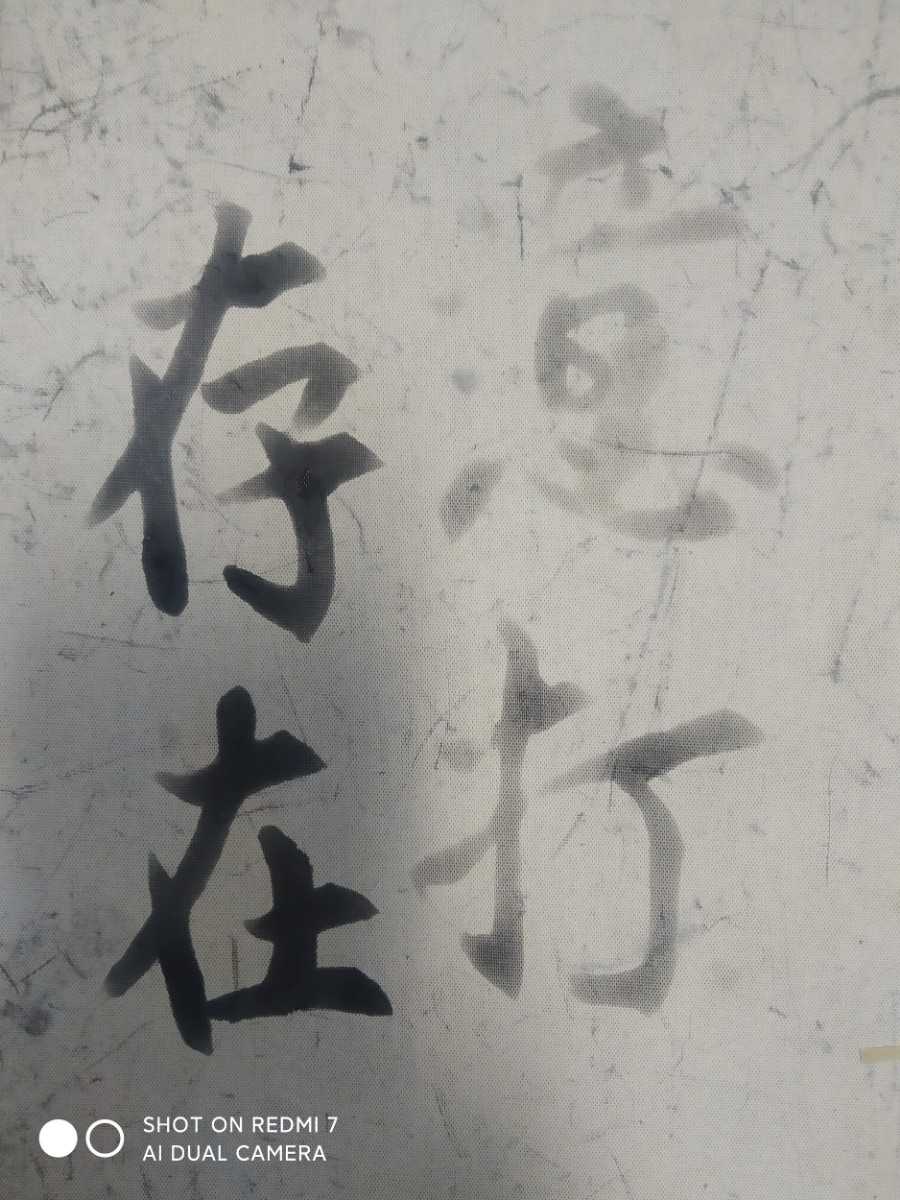 意打
存在
SHOT ON REDMI 7
AI DUAL CAMERA